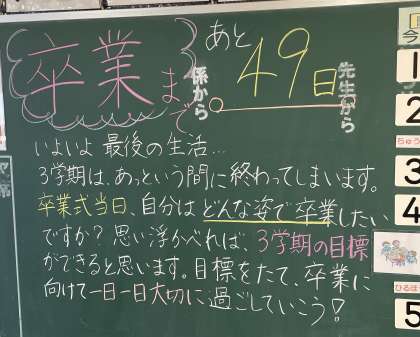 卒業まで
あと49日
係から
先生から
いよいよ最後の生活…
3学期は、あっという間に終わってしまいます。
卒業式当日、自分はどんな姿で卒業したい
ですか?思い浮かべれば、3学期の目標
ができると思います。目標をたて、卒業に
向けて一日一日大切に過ごしていこう!
今
1
2
ちゅう
3
4
ひるほ
5